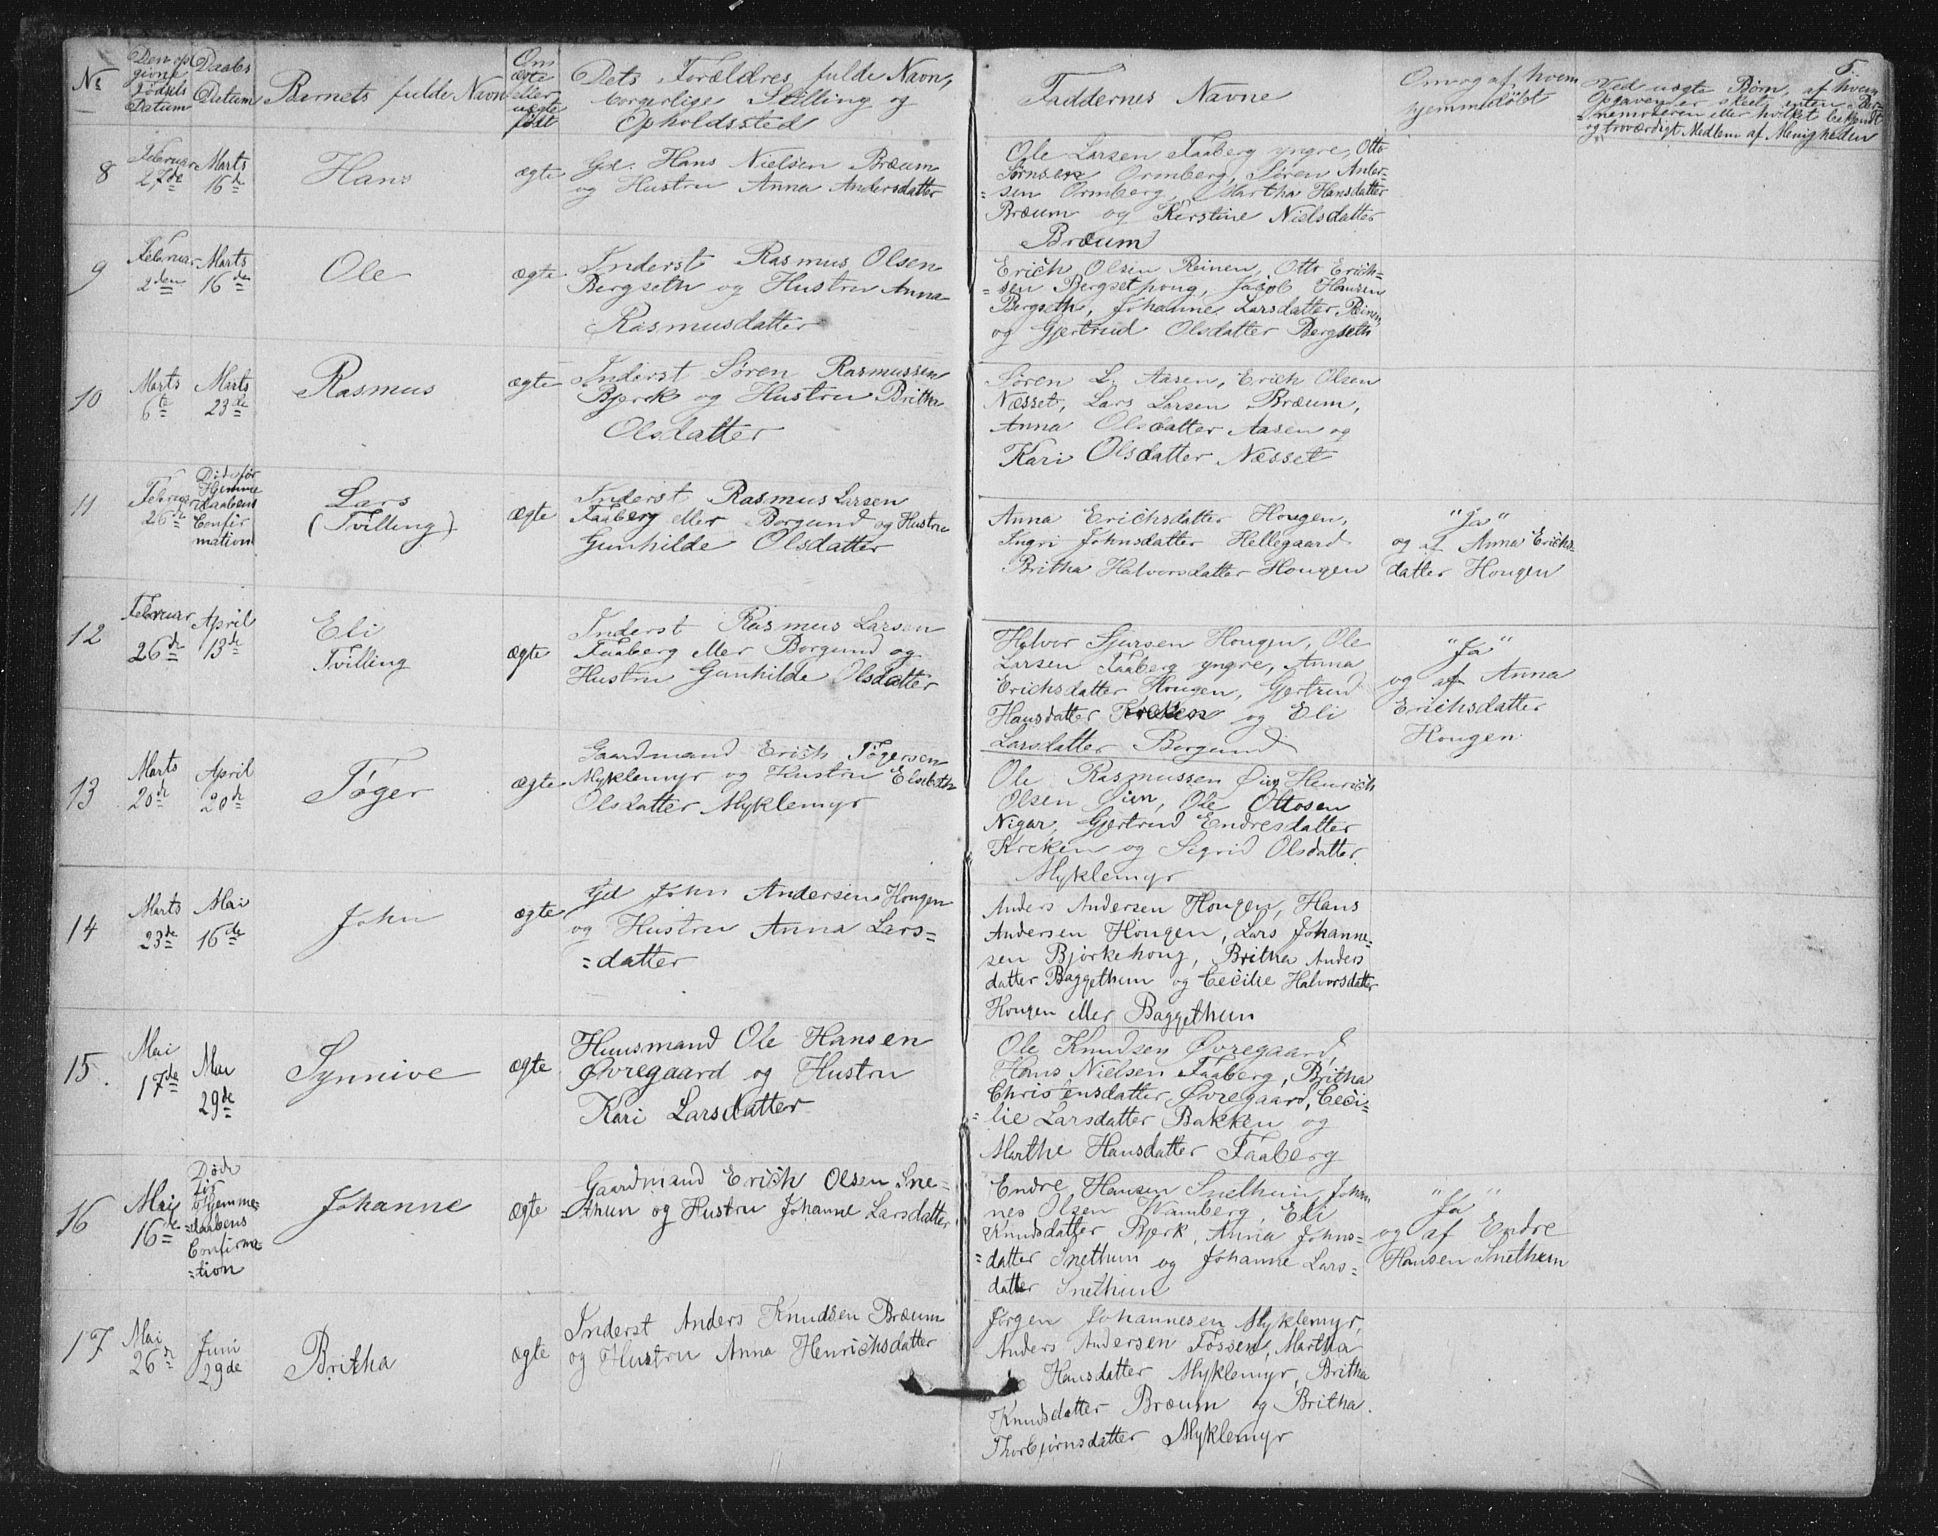 5.
No
Den op
givne
Fødsels
Datum
Daabs
Datum
Barnets fulde Navn
Om
ægte
eller
uægte
født
Dets Forældres fulde Navn,
borgerlige Stilling og
Opholdssted
Faddernes Navne
Om og af hvem
hjemmedøbt
Ved uægte Børn, af hvem
Opgaven er skeet, enten
eller hvilket bekjendt
og troværdigt Medlem af Menigheden
8
Februar
27de
Marts
16de
Hans
ægte
Gd. Hans Nielsen Bræum
og Hustru Anna Andersdatter
Ole Larsen Faaberg yngre, Otto
Sørnsen Ormberg, Søren Ander-
=sen Ormberg, Martha Hansdatter
Bræum og Kirstine Nielsdatter
Bræum
9
Februar
2den
Marts
16de
Ole
ægte
Inderst Rasmus Olsen
Bergseth og Hustru Anna
Rasmusdatter
Erich Olsen Reinen, Otto Erich=
=sen Bergsethoug, Jacob Hansen
Bergseth, Johanne Larsdatter Reinen
og Gjertrud Olsdatter Bergseth
10
Marts
6te
Marts
23de
Rasmus
ægte
Inderst Søren Rasmussen
Bjørk og Hustru Britha
Olsdatter
Søren L. Aasen, Erich Olsen
Næsset, Lars Larsen Bræum,
Anna Olsdatter Aasen og
Kari Olsdatter Næsset
11
Februar
26de
Død før
Hjemme
daabens
Confir
mation
Lars
(Tvilling)
ægte
Inderst Rasmus Larsen
Faaberg eller Borgund og Hustru
Gunhilde Olsdatter
Anna Erichsdatter Hougen,
Ingri Johnsdatter Hellegaard
Britha Halvorsdatter Hougen
"Ja"
og af Anna Erichs-
datter Hougen
12
Februar
26de
April
13de
Eli
Tvilling
ægte
Inderst Rasmus Larsen
Faaberg eller Borgund og
Hustru Gunhilde Olsdatter
Halvor Sjursen Hougen, Ole
Larsen Faaberg yngre, Anna
Erichsdatter Hougen, Gjertrud
Hansdatter Kreken og Eli
Larsdatter Borgund
"Ja"
og af Anna
Erichsdatter
Hougen
13
Marts
20de
April
20de
Tøger
ægte
Gaardmand Erich Tøgersen
Myklemyr og Hustru Elsebeth
Olsdatter Myklemyr
Ole Rasmussen Øien, Henrich
Olsen Øien, Ole Ottosen
Nigar, Gjertrud Endresdatter
Kreken og Sigrid Olsdatter
Myklemyr
14
Marts
23de
Mai
16de
John
ægte
Gd John Andersen Hougen
og Hustru Anna Lars=
=datter
Anders Andersen Hougen, Hans
Andersen Hougen, Lars Johanne-
sen Bjørkehoug, Britha Anders
datter Baggethun og Cecilie Halvorsdatter
Hougen eller Baggethun
15.
Mai
17de
Mai
29de
Synnive
ægte
Huusmand Ole Hansen
Øvregaard og Hustru
Kari Larsdatter
Ole Knudsen Øvregaard,
Hans Nielsen Faaberg, Britha
Christensdatter Øvregaard, Ceci-
=lie Larsdatter Bakken og
Marthe Hansdatter Faaberg
16
Mai
16de
Død
før
Hjemme-
=daabens
Confirma
=tion
Johanne
ægte
Gaardmand Erich Olsen Sne=
=thun og Hustru Johanne Larsdatter
Endre Hansen Snethun, Johan
nes Olsen Wamberg, Eli
Knudsdatter Bjørk, Anna Johns=
=datter Snethun og Johanne Lars=
datter Snethun
"Ja"
og af Endre
Hansen Snethun
17
Mai
26de
Juni
29de
Britha
ægte
Inderst Anders Knudsen Bræum
og Hustru Anna Henrichsdatter
Jørgen Johannesen Myklemyr,
Anders Andersen Fossen, Martha
Hansdatter Myklemyr, Britha
Knudsdatter Bræum og Britha
Thorbjørnsdatter Myklemyr